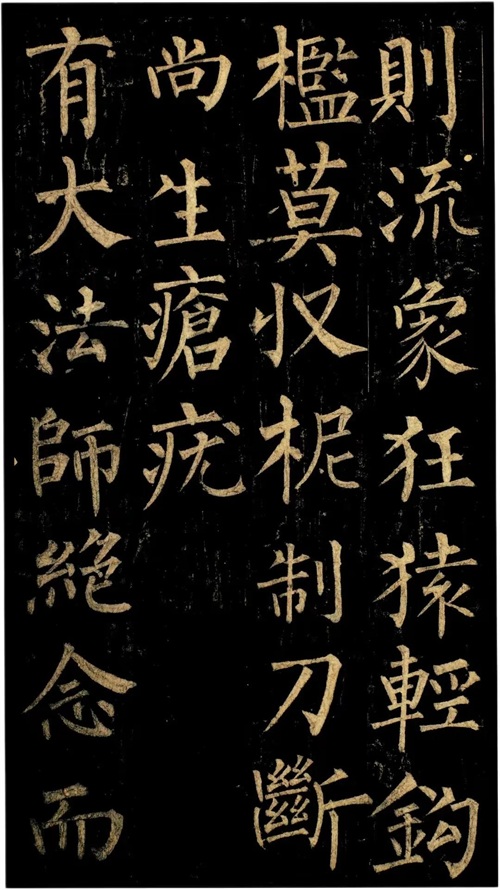 則流象狂猿輕鈎
檻莫収柅制刀斷
尚生瘡疣
有大法師絶念而